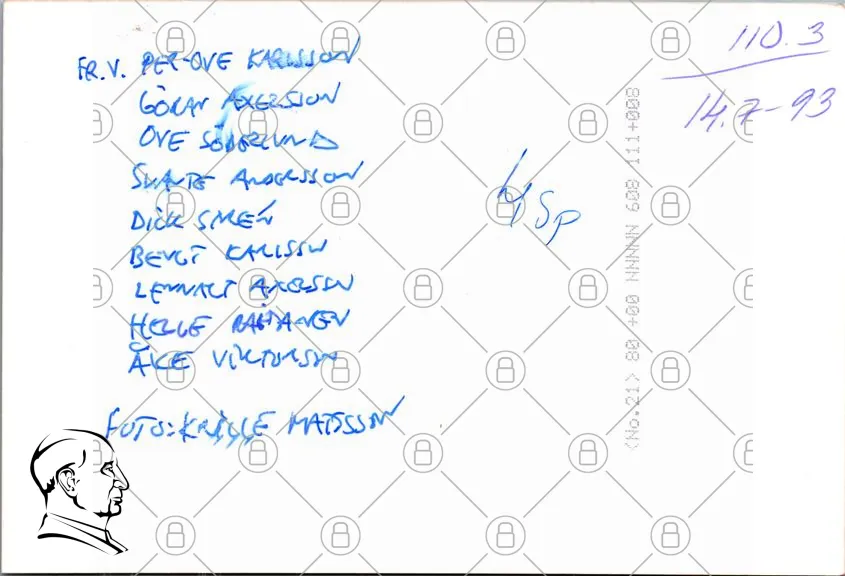 FR.V. PER-OVE KARLSSON
GÖRAN AXELSSON
OVE SÖDERLUND
SVANTE ANDERSSON
DICK SIRÉN
BENGT KARLSSON
LENNART AXELSSON
HELGE
ÅKE VIKTORSSON
FOTO: KRILLE MATSSON
110.3
14.7-93
Sp
(No.21) 80 +00 NNNNN 608 111+008